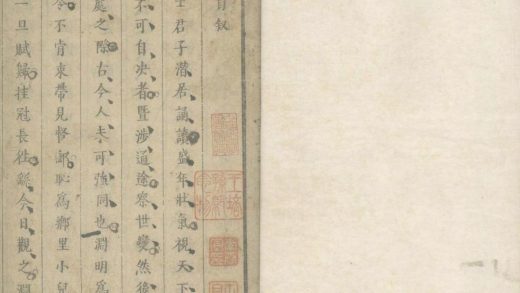 自叙
士君子潜居誦讀盛年壯氣視天下
不可自决者暨涉通途察世變然後
處之際古今人夫可強同也淵明爲
令不肯束帶見督郵恥爲鄉里小兒
一旦賦歸挂冠長徃繇今日觀之淵